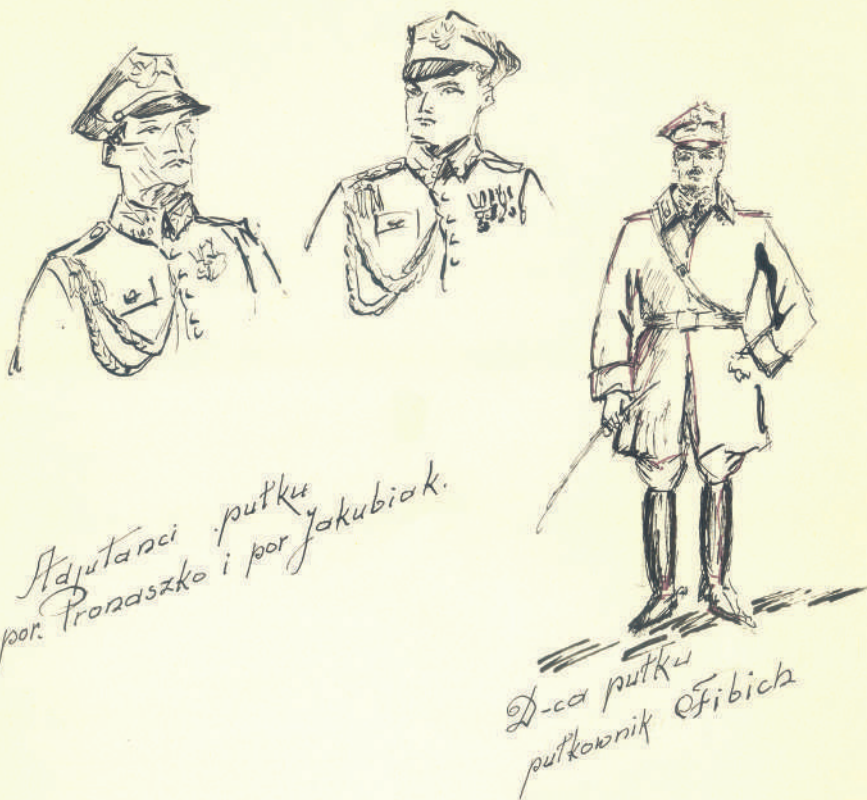 Adjutanci pułku
por. Pronaszko i por Jakubiak.
D-ca pułku
pułkownik Fibich